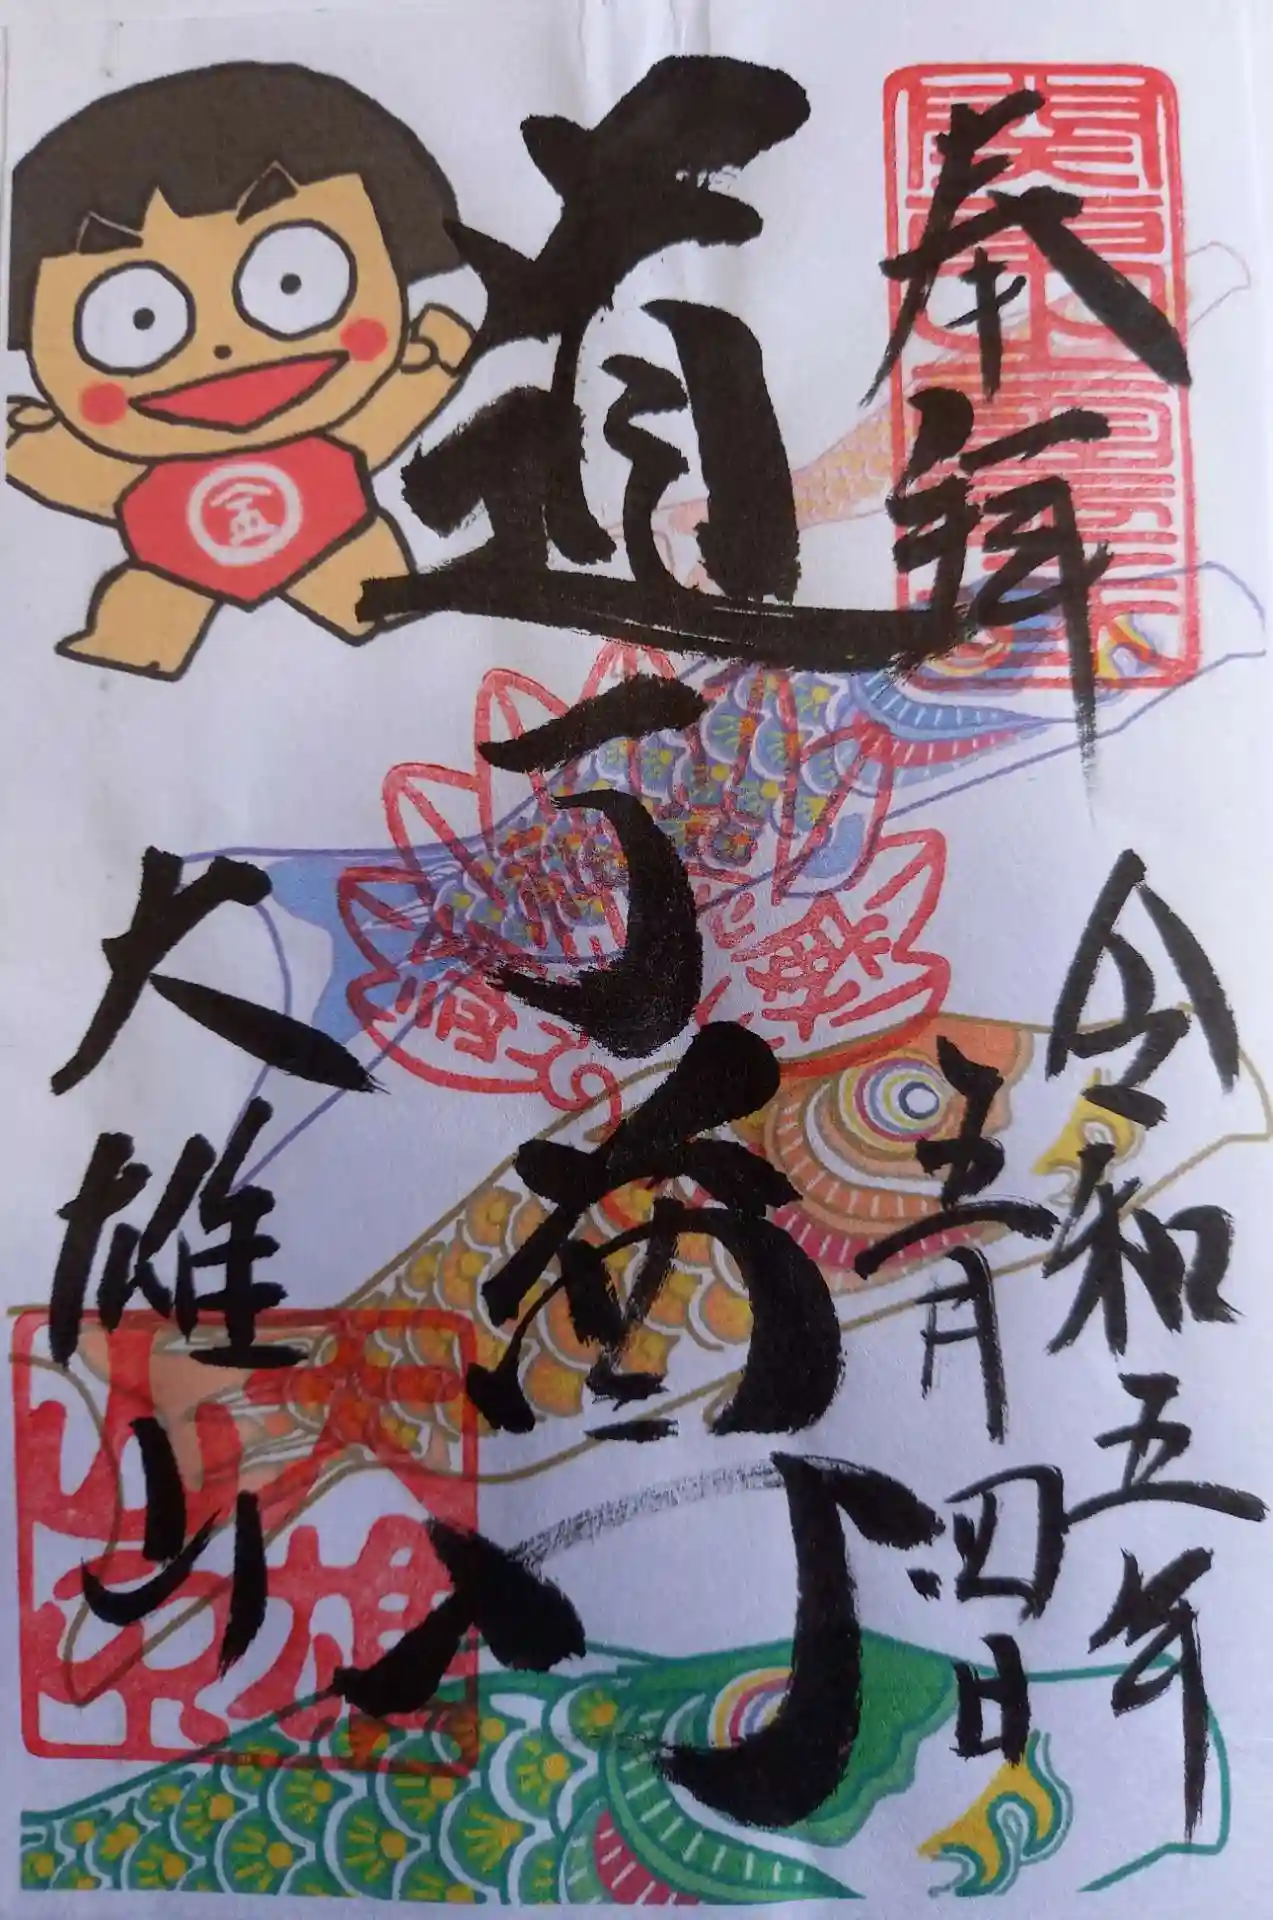 奉拝
令和五年
五月四日
道了尊
大雄山
金